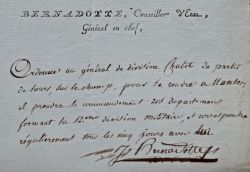 BERNADOTTE, Conseiller d'Etat,
Général en chef,
Ordonne au général de division Chalot de partir
de tours, sur le champ, pour se rendre à Nantes,
il prendra le commandement des departemens
formant la 12eme division militaire, et correspondra
régulièrement tous les cinq jours avec lui
J Bernadotte